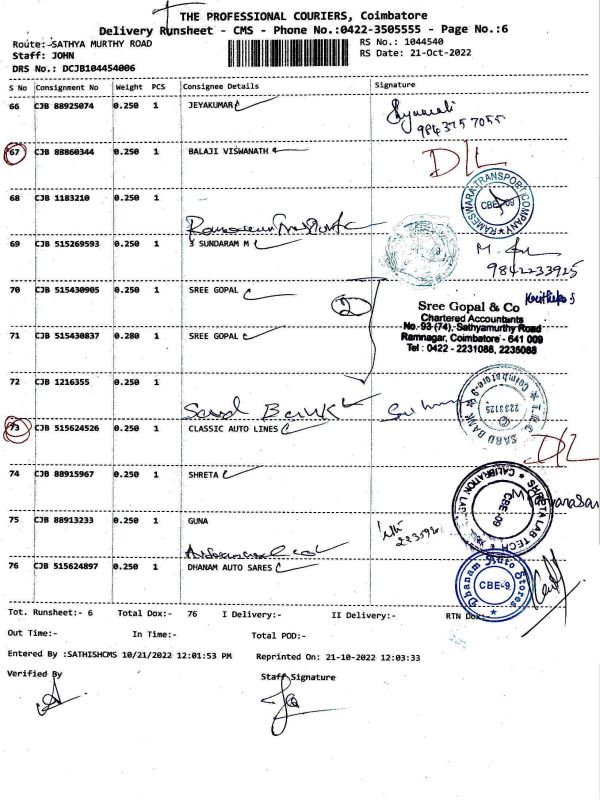 THE PROFESSIONAL COURIERS, Coimbatore
Delivery Runsheet - CMS - Phone No.:0422-3505555 - Page No.:6
Route:-SATHYA MURTHY ROAD
RS No.: 1044540
Staff: JOHN
RS Date: 21-Oct-2022
DRS No.: DCJB104454006
S No Consignment No Weight PCS Consignee Details Signature
66 CJB 88925074 0.250 1 JEYAKUMAR
9843757055
67 CJB 88860344 0.250 1 BALAJI VISWANATH
D/L
68 CJB 1183210 0.250 1
RAMESWARA TRANSPORT COMPANY
CBE-09
69 CJB 515269593 0.250 1 S SUNDARAM M
9842233925
70 CJB 515430905 0.250 1 SREE GOPAL
2
Sree Gopal & Co
Chartered Accountants
No. 93 (74), Sathyamurthy Road
Ramnagar, Coimbatore - 641 009
Tel : 0422 - 2231088, 2235088
71 CJB 515430837 0.280 1 SREE GOPAL
72 CJB 1216355 0.250 1
Bank
2233125
Coimbatore-9
73 CJB 515624526 0.250 1 CLASSIC AUTO LINES
D/L
74 CJB 88915967 0.250 1 SHRETA
SHRETA LAB TECH
CALIBRATION LAB
CBE-09
75 CJB 88913233 0.250 1 GUNA
76 CJB 515624897 0.250 1 DHANAM AUTO SARES
Dhanam Auto Stores
CBE-9
Tot. Runsheet:- 6 Total Dox:- 76 I Delivery:- II Delivery:- RTN Dox:-
Out Time:- In Time:- Total POD:-
Entered By :SATHISHCMS 10/21/2022 12:01:53 PM Reprinted On: 21-10-2022 12:03:33
Verified By Staff Signature